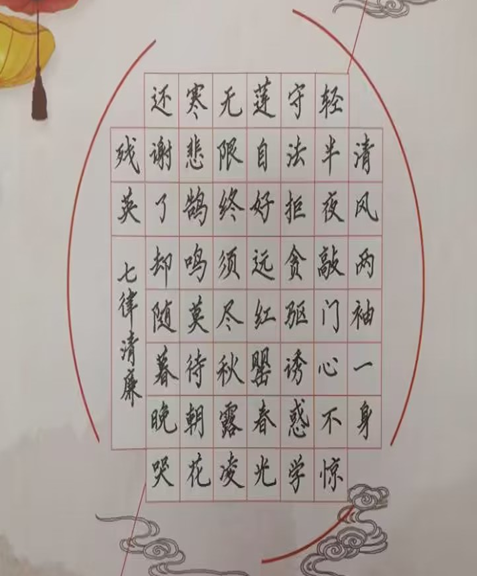 清风两袖一身
轻半夜敲门心不惊
守法拒贪驱诱惑学
莲自好远红罂春光
无限终须尽秋露凌
寒悲鹄鸣莫待朝花
还谢了却随暮晚哭
残英
七律清廉